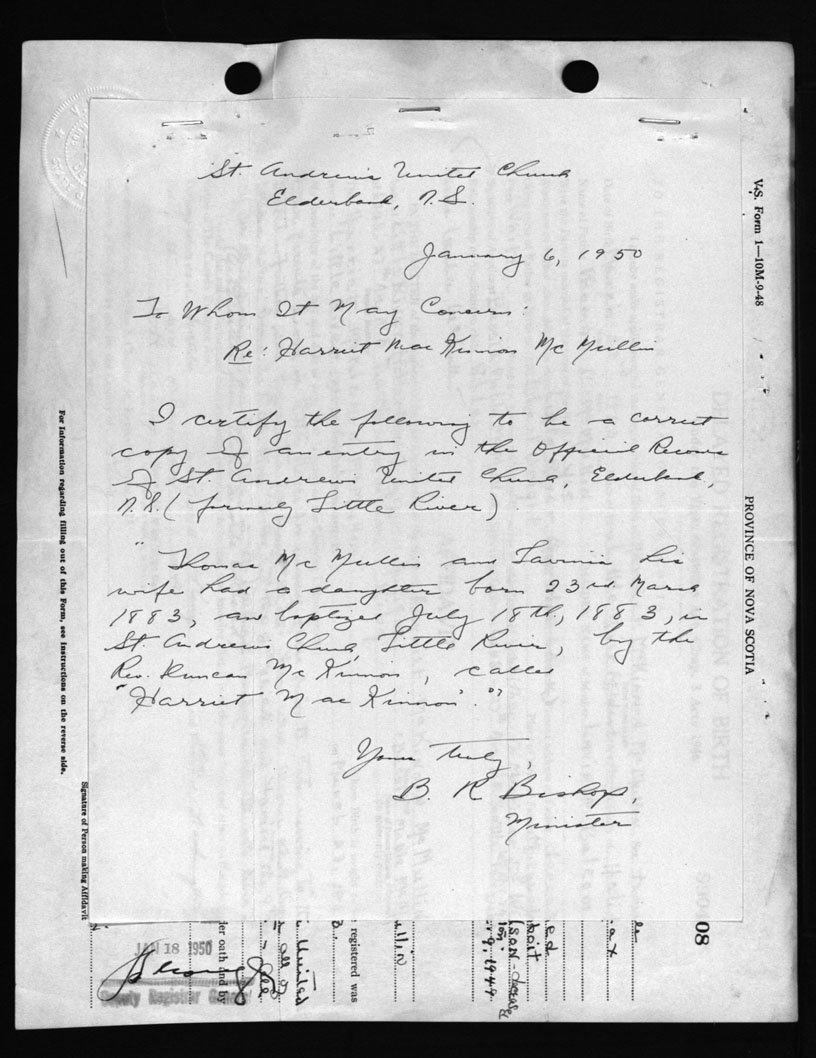 St. Andrews United Church
Elderbank, N.S.
January 6, 1950
To Whom It May Concern:
Re: Harriet Mac Kinnon Mc Mullin
I certify the following to be a correct
copy of an entry in the Official Records
of St. Andrews United Church, Elderbank,
N.S. (formerly Little River).
"Thomas Mc Mullin and Lavinia his
wife had a daughter born 23rd March
1883, and baptized July 18th, 1883, in
St. Andrews Church, Little River, by the
Rev. Duncan Mc Kinnon, called
"Harriet Mac Kinnon"."
Yours truly,
B. R. Bishop,
Minister
V.S. Form 1—10M-9-48
PROVINCE OF NOVA SCOTIA
08
For Information regarding filling out of this Form, see Instructions on the reverse side.
Signature of Person making Affidavit
JAN 18 1950
Deputy Registrar General
er oath and by
United
registered was
ullin
9, 1949